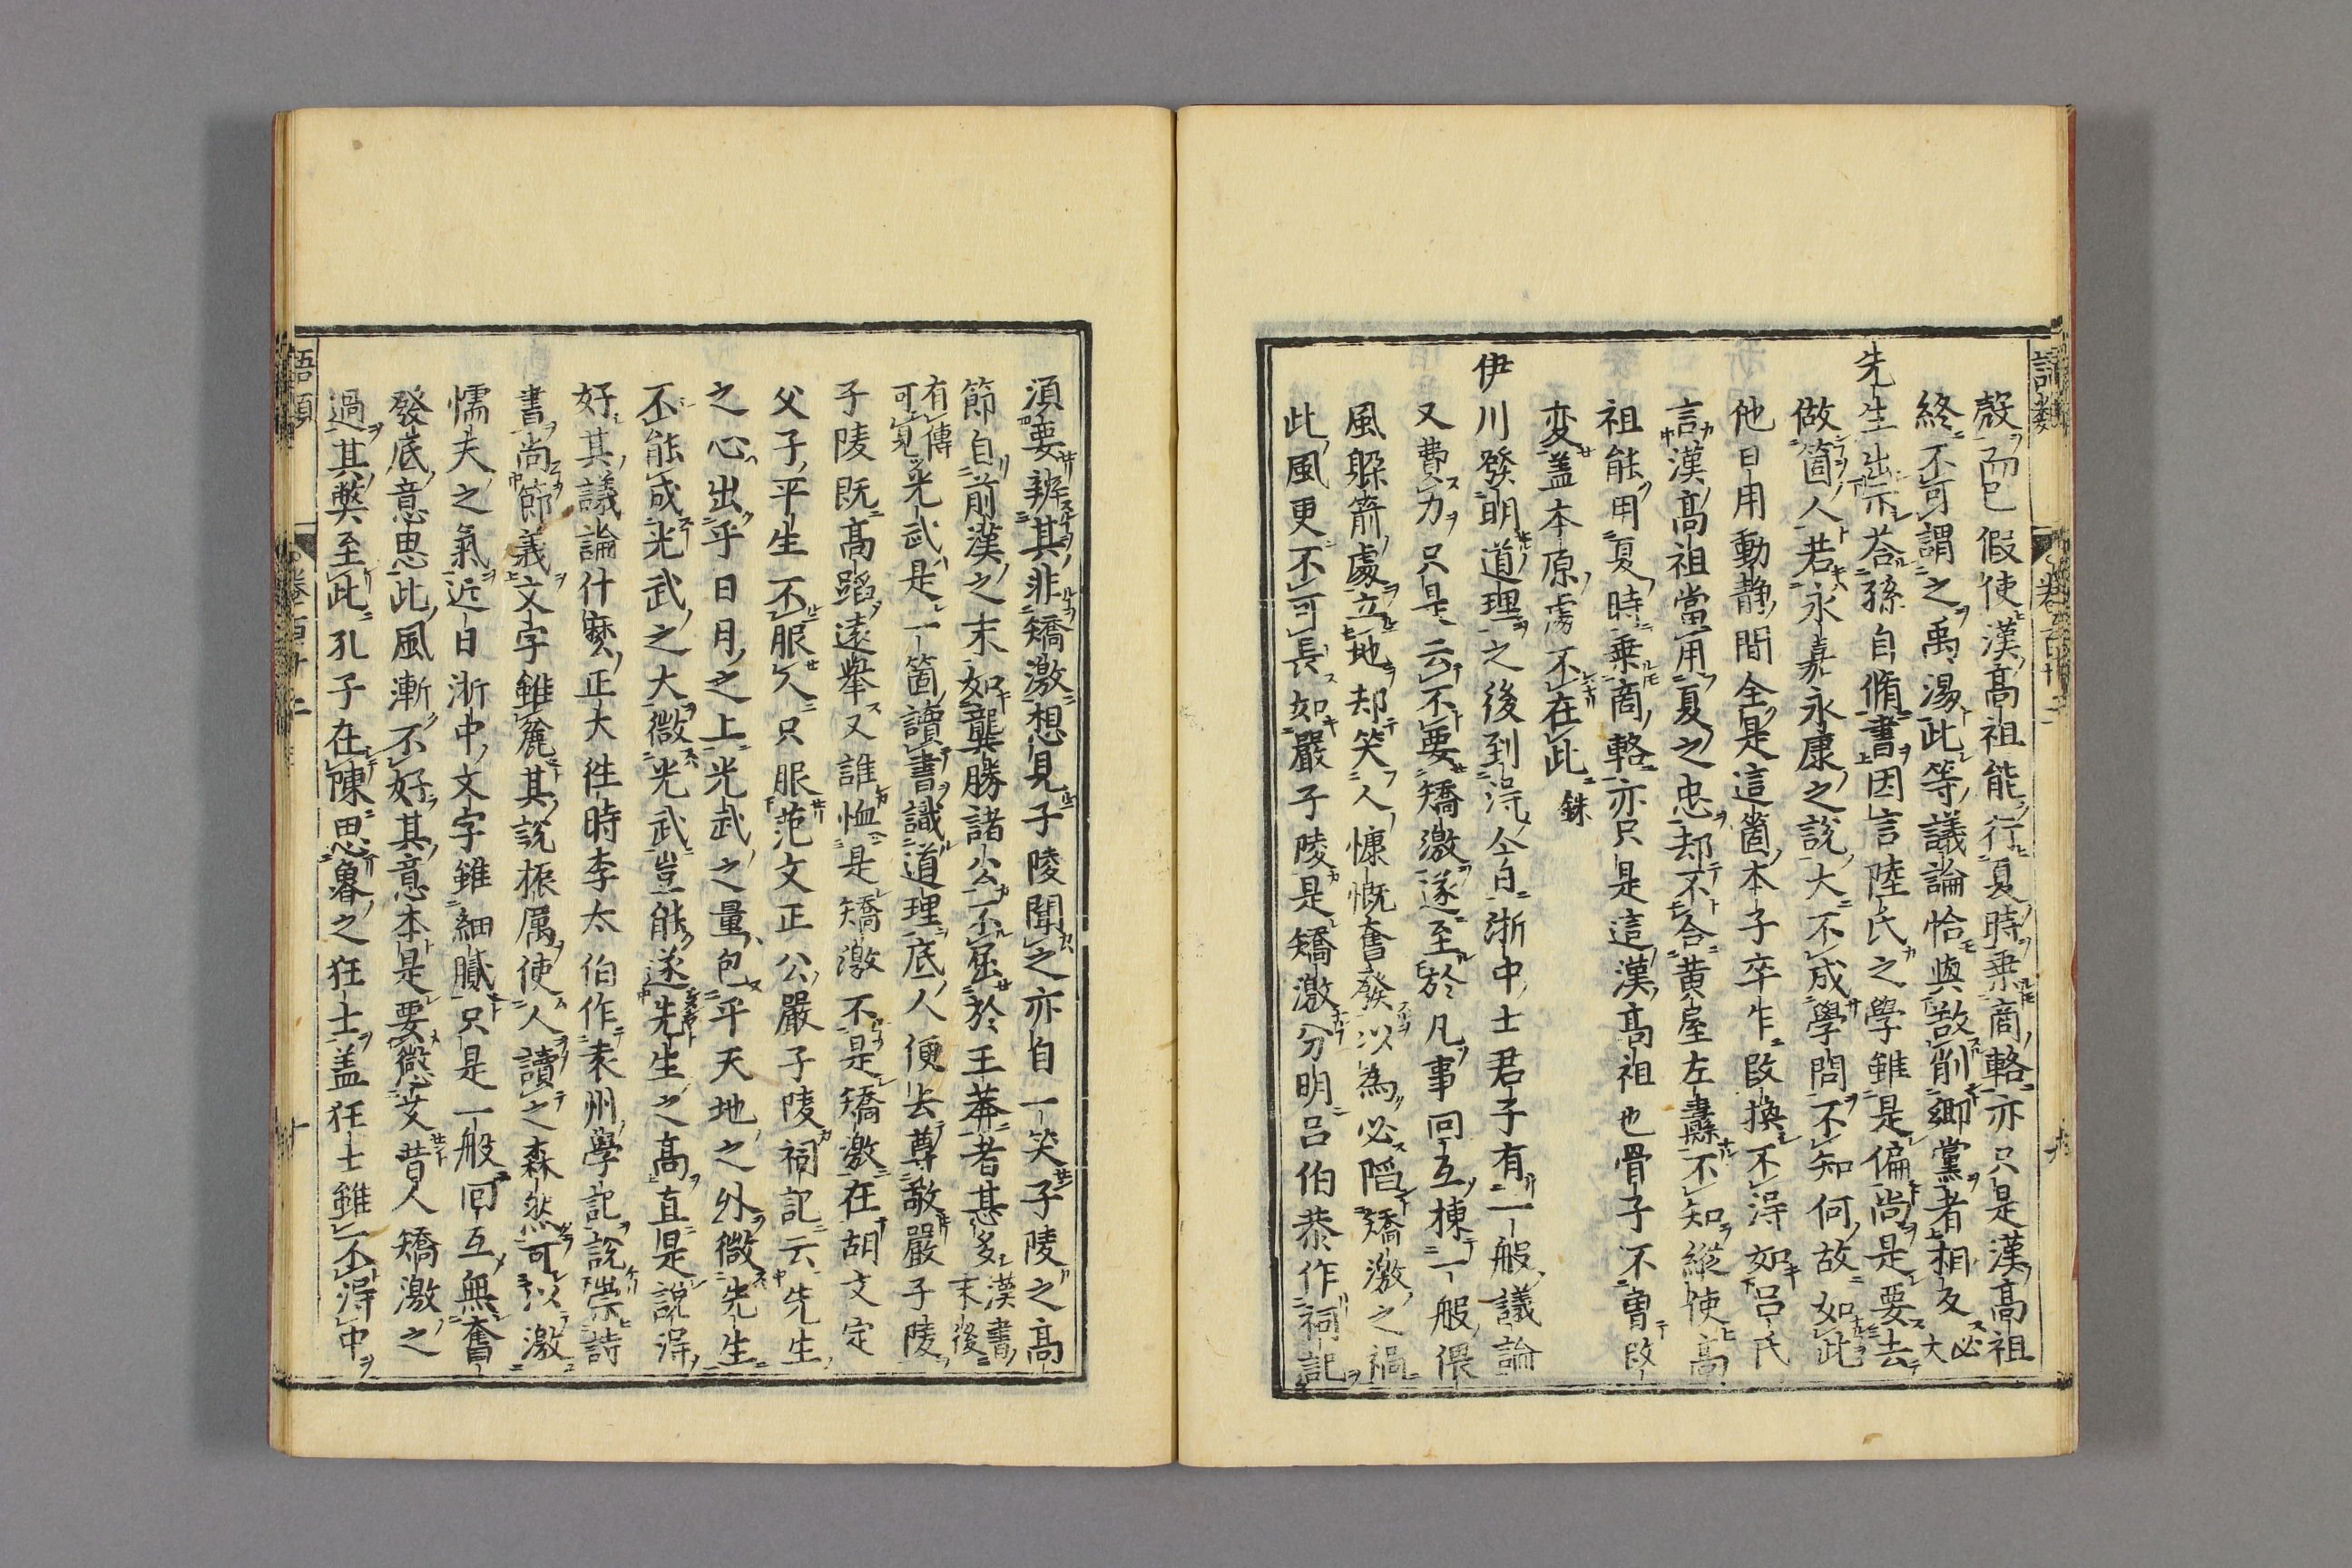 語類
卷百廿二
九
殼而已假使漢髙祖能行夏時乗商輅亦只是漢髙祖
終不可謂之禹湯此等議論恰與敌削郷黨者相反必大
先生出示荅孫自脩書因言陸氏之學雖是偏尚是要去
做箇人若永嘉永康之說大不成學問不知何故如此
他日用動静間全是這箇本子卒乍改換不得如吕氏
言漢髙祖當用夏之忠却不合黄屋左纛不知縱使髙
祖能用夏時乗商輅亦只是這漢髙祖也骨子不曽改
変盖本原處不在此銖
伊川發明道理之後到得今日浙中士君子有一般議論
又費力只是云不要矯激遂至於凡事回互揀一般偎
風躱箭處立地却笑人慷慨奮發以為必䧟矯激之禍
此風更不可長如嚴子陵是矯激分明吕伯恭作祠記
須要辨其非矯激想見子陵聞之亦自一笑子陵之髙
節自前漢之末如龔勝諸公不屈於王莽者甚多漢書末後
有傳可見光武是一箇讀書識道理底人便去尊敬嚴子陵
子陵既髙蹈遠舉又誰恤是矯激不是矯激在胡文定
父子平生不服人只服范文正公嚴子陵祠記云先生
之心出乎日月之上光武之量包乎天地之外微先生
不能成光武之大微光武豈能遂先生之髙直是說得
好其議論什麽正大徃時李太伯作袁州學記說崇詩
書尚節義文字雖麄其說振厲使人讀之森然可以激
懦夫之氣近日浙中文字雖細膩只是一般回互無奮
發底意思此風漸不好其意本是要懲艾昔人矯激之
過其弊至此孔子在陳思魯之狂士盖狂士雖不得中
語類
卷百廿二
十